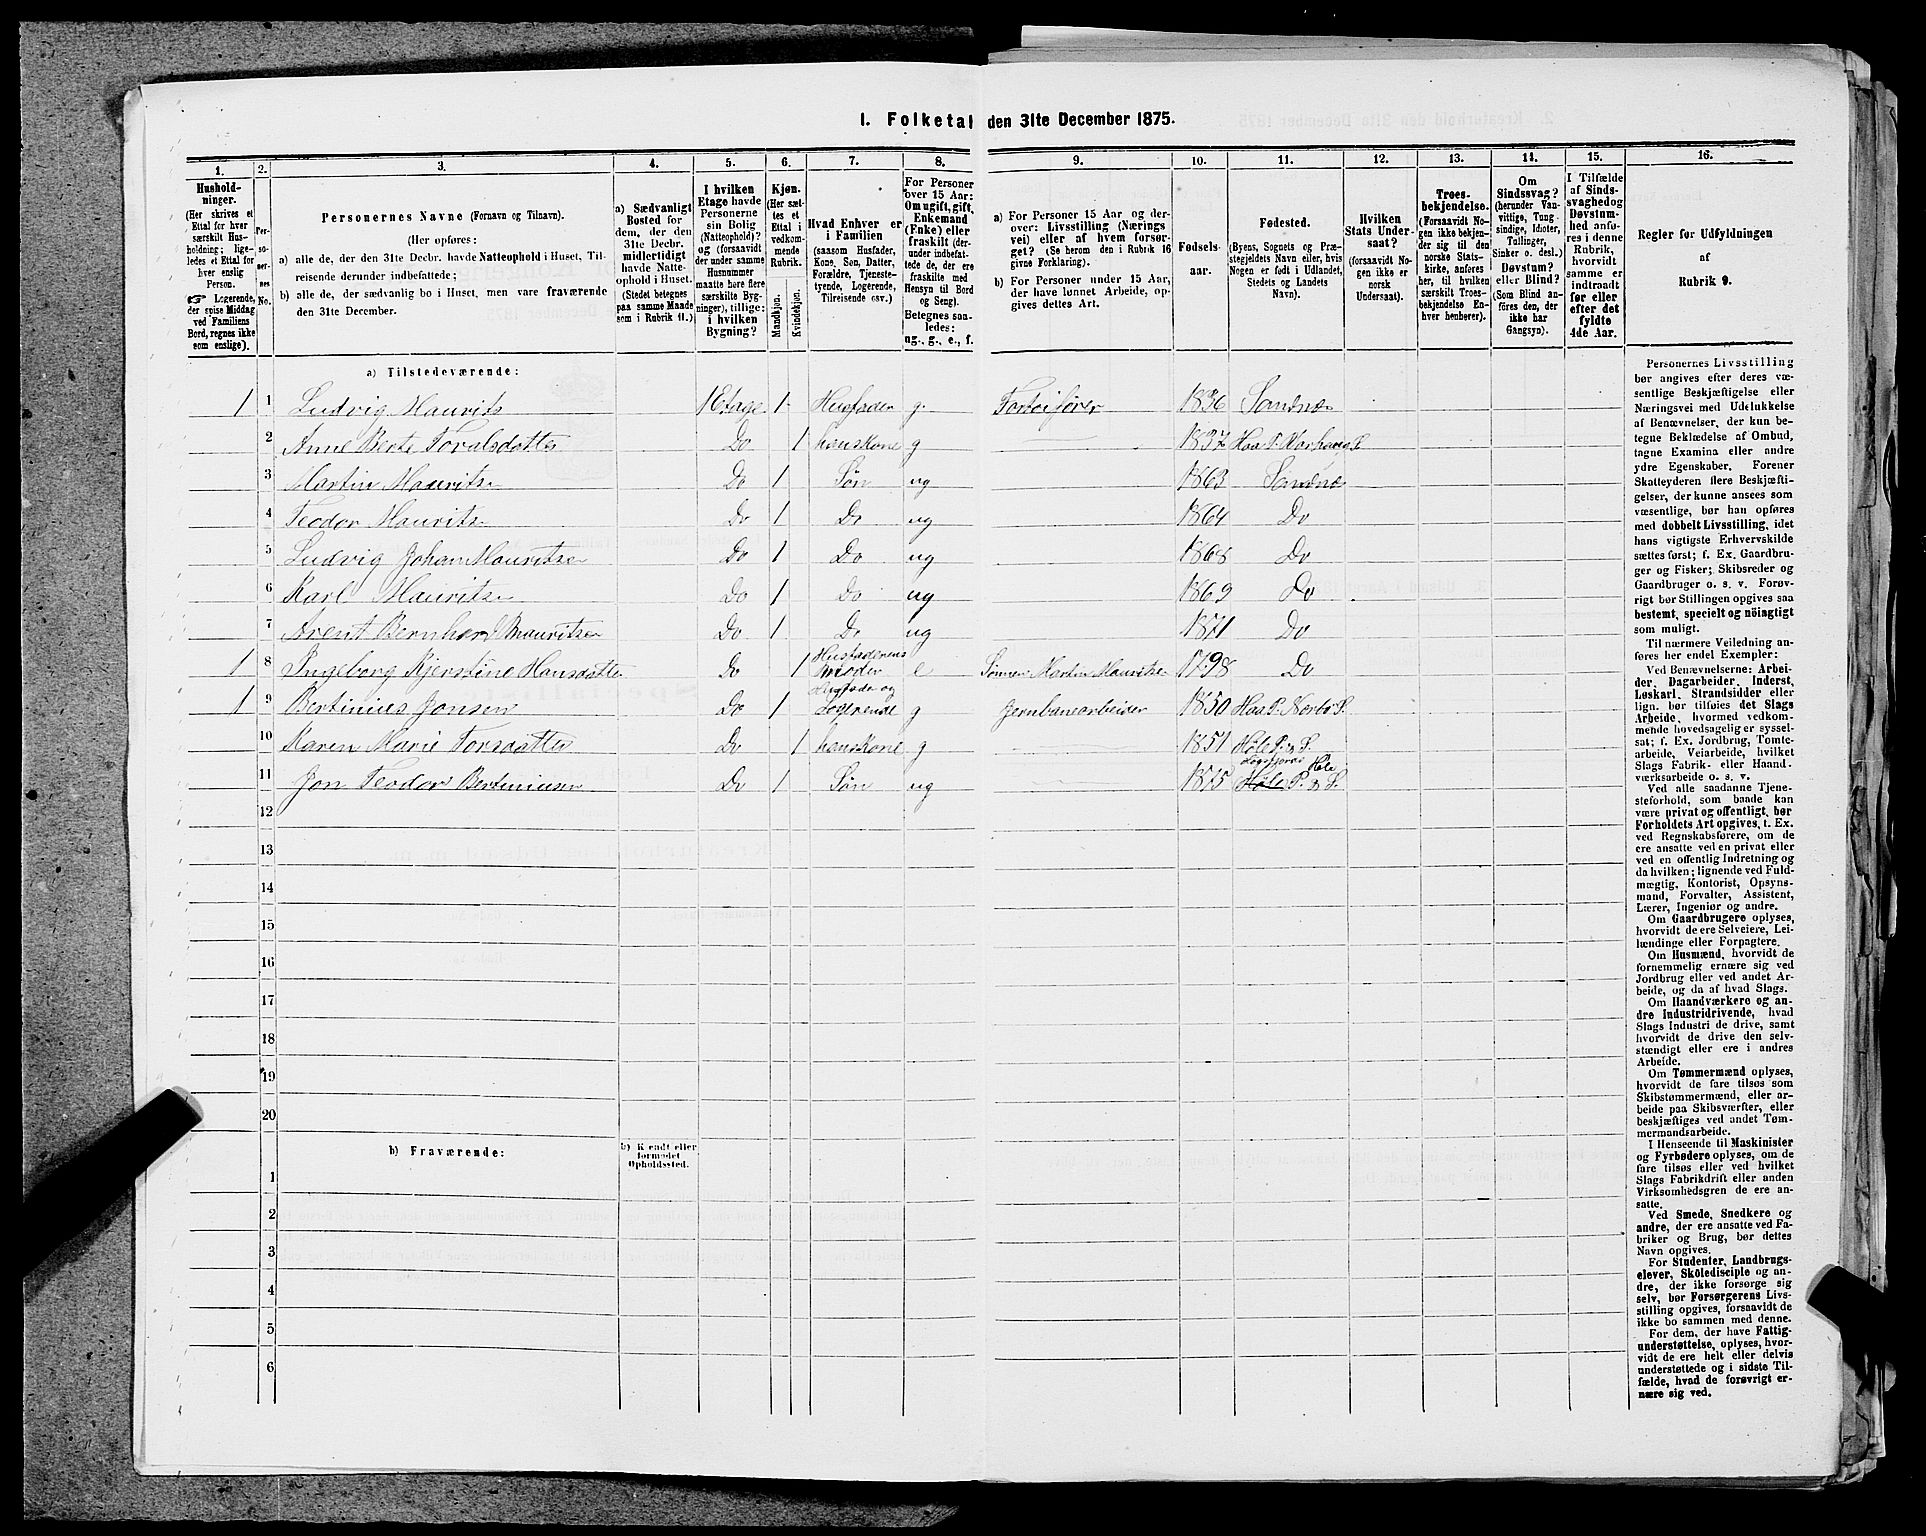 1. Folketal den 31te December 1875.
1. 2. 3. 4. 5. 6. 7. 8. 9. 10. 11. 12. 13. 14. 15. 16.
Hushold-
ninger.
(Her skrives et
Ettal for hver
særskilt Hus-
holdning; lige-
ledes et Ettal for
hver enslig
Person.
☞ Logerende,
der spise Middag
ved Familiens
Bord, regnes ikke
som enslige).
Per-
so-
ner-
nes
No.
Personernes Navne (Fornavn og Tilnavn).
(Her opføres:
a) alle de, der den 31te Decbr. havde Natteophold i Huset, Til-
reisende derunder indbefattede;
b) alle de, der sædvanlig bo i Huset, men vare fraværende
den 31te December.
a) Sædvanligt
Bosted for
dem, der den
31te Decbr.
midlertidigt
havde Natte-
ophold i Huset.
(Stedet betegnes
paa samme Maade
som i Rubrik 11.)
I hvilken
Etage havde
Personerne
sin Bolig
(Natteophold)?
og
(forsaavidt
der under samme
Husnummer
maatte høre flere
særskilte Byg-
ninger), tillige:
i hvilken
Bygning?
Kjøn.
(Her sæt-
tes et
Ettal i
vedkom-
mende
Rubrik.
Mandkjøn.
Kvindekjøn.
Hvad Enhver er
i Familien
(saasom Husfader,
Kone, Søn, Datter,
Forældre, Tjeneste-
tyende, Logerende,
Tilreisende osv.)
For Personer
over 15 Aar:
Om ugift, gift,
Enkemand
(Enke) eller
fraskilt (der-
under indbefat-
tede de, der ere
fraskilte med
Hensyn til Bord
og Seng).
Betegnes saa-
ledes:
ug., g., e., f.
a) For Personer 15 Aar og der-
over: Livsstilling (Nærings
vei) eller af hvem forsør-
get? (Se herom den i Rubrik 16
givne Forklaring).
b) For Personer under 15 Aar,
der have lønnet Arbeide, op-
gives dettes Art.
Fødsels-
aar.
Fødested.
(Byens, Sognets og Præ-
stegjeldets Navn eller, hvis
Nogen er født i Udlandet,
Stedets og Landets
Navn).
Hvilken
Stats Under-
saat?
(forsaavidt No-
gen ikke er
norsk
Undersaat).
Troes-
bekjendelse.
(Forsaavidt No-
gen ikke bekjen-
der sig til den
norske Stats-
kirke, anføres
her, til hvilken
særskilt Troes-
bekjendelse En-
hver henhører).
Om
Sindssvag?
(herunder Van-
vittige, Tung-
sindige, Idioter,
Tullinger,
Sinker o. desl.)
Døvstum?
eller Blind?
(Som Blind an-
føres den, der
ikke har
Gangsyn).
I Tilfælde
af Sinds-
svaghed og
Døvstum-
hed anfø-
res i denne
Rubrik,
hvorvidt
samme er
indtraadt
før eller
efter det
fyldte
4de Aar.
Regler for Udfyldningen
af
Rubrik 9.
a) Tilstedeværende:
1 1 Ludvig Maurits 1 Etage 1 Husfader g. 1836 Sandnæs
2 Anne Berte Do 1 huuskone g 1837
3 Martin Mauritsen Do 1 Søn ug 1863 Sandnæs
4 Teodor Mauritsen Do 1 Do ug 1864 Do
5 Ludvig Johan Mauritsen Do 1 Do ug 1868 Do
6 Karl Mauritsen Do 1 Do ug 1869 Do
7 Arent Bernhard Mauritsen Do 1 Do ug 1871 Do
1 8 Ingeborg Kjerstine Hansdatter Do 1 Husfaderens moder e Sønnen Martin Mauritsen 1798 Do
1 9 Bertinius Jonsen Do 1 Husfader og Logerende g Jernbanearbeider 1850 Haa P. Nærbø S.
10 Karen Marie Do 1 huuskone g 1851 Høle P. & S.
11 Jon Teodor Bertiniusen Do 1 Søn ug 1875 Høle P. & S.
12
13
14
15
16
17
18
19
20
b) Fraværende: b) Kjendt eller
formodet
Opholdssted.
1
2
3
4
5
6
Personernes Livsstilling
bør angives efter deres væ-
sentlige Beskjæftigelse eller
Næringsvei med Udelukkelse
af Benævnelser, der kun be-
tegne Beklædelse af Ombud,
tagne Examina eller andre
ydre Egenskaber. Forener
Skatteyderen flere Beskjæfti-
gelser, der kunne ansees som
væsentlige, bør han opføres
med dobbelt Livsstilling, idet
hans vigtigste Erhvervskilde
sættes først; f. Ex. Gaardbru-
ger og Fisker; Skibsreder og
Gaardbruger o. s. v. Forøv-
rigt bør Stillingen opgives saa
bestemt, specielt og nöiagtigt
som muligt.
Til nærmere Veiledning an-
føres her endel Exempler:
Ved Benævnelserne: Arbei-
der, Dagarbeider, Inderst,
Løskarl, Strandsidder eller
lign. bør tilføies det Slags
Arbeide, hvormed vedkom-
mende hovedsagelig er syssel-
sat; f. Ex. Jordbrug, Tomte-
arbeide, Veiarbeide, hvilket
Slags Fabrik- eller Haand-
værksarbeide o. s. v.
Ved alle saadanne Tjene-
steforhold, som baade kan
være privat og offentligt, bør
Forholdets Art opgives, t. Ex.
ved Regnskabsførere, om de
ere ansatte ved en privat eller
ved en offentlig Indretning og
da hvilken; lignende ved Fuld-
mægtig, Kontorist, Opsyns-
mand, Forvalter, Assistent,
Lærer, Ingeniør og andre.
Om Gaardbrugere oplyses,
hvorvidt de ere Selveiere, Lei-
lændinge eller Forpagtere.
Om Husmænd, hvorvidt de
fornemmelig ernære sig ved
Jordbrug eller ved andet Ar-
beide, og da af hvad Slags.
Om Haandværkere og an-
dre Industridrivende, hvad
Slags Industri de drive, samt
hvorvidt de drive den selv-
stændigt eller ere i andres
Arbeide.
Om Tømmermænd oplyses,
hvorvidt de fare tilsøs som
Skibstømmermænd, eller ar-
beide paa Skibsværfter, eller
beskjæftiges ved andet Tøm-
mermandsarbeide.
I Henseende til Maskinister
og Fyrbødere oplyses, om de
fare tilsøs eller ved hvilket
Slags Fabrikdrift eller anden
Virksomhedsgren de ere an-
satte.
Ved Smede, Snedkere og
andre, der ere ansatte ved Fa-
briker og Brug, bør dettes
Navn opgives.
For Studenter, Landbrugs-
elever, Skoledisciple og an-
dre, der ikke forsørge sig
selv, bør Forsørgerens Livs-
stilling opgives, forsaavidt de
ikke bo sammen med denne.
For dem, der have Fattig-
understøttelse, oplyses, hvor-
vidt de ere helt eller delvis
understøttede og i sidste Til-
fælde, hvad de forøvrigt er-
nære sig ved.